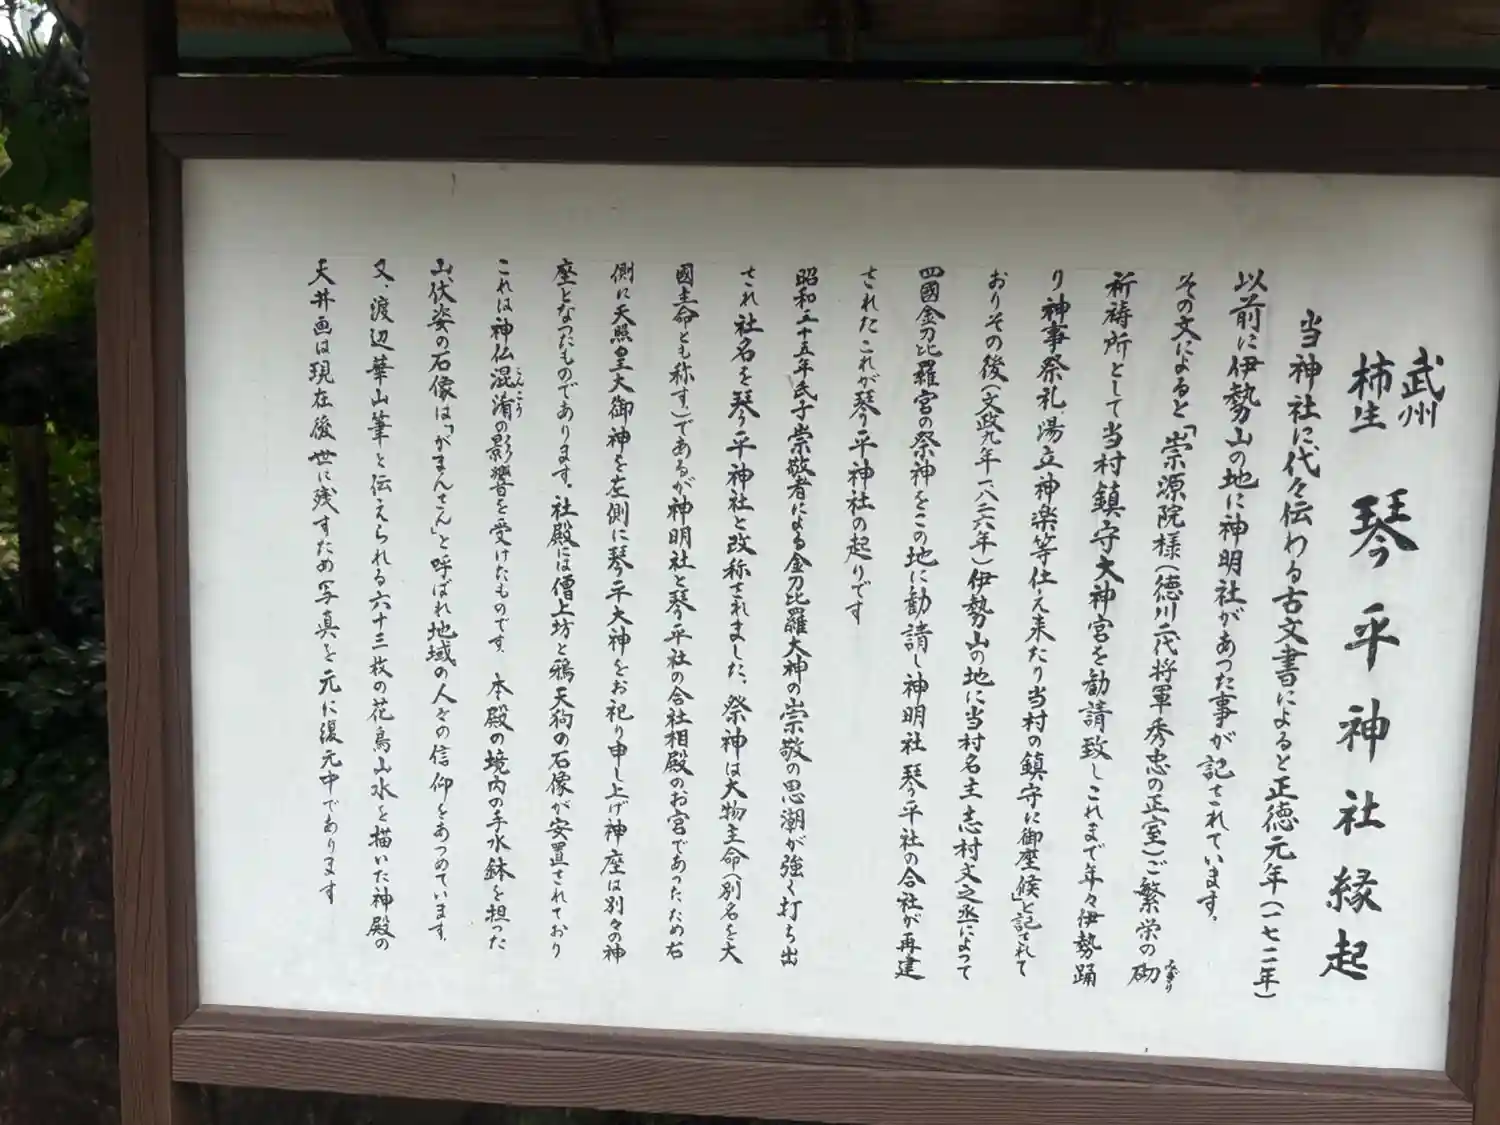 武州
柿生
琴平神社縁起
当神社に代々伝わる古文書によると正徳元年(一七一一年)
以前に伊勢山の地に神明社があった事が記されています。
その文によると「崇源院様(徳川二代将軍秀忠の正室)ご繁栄の砌
みぎり
祈祷所として当村鎮守大神宮を勧請致しこれまで年々伊勢踊
り神事祭礼湯立神楽等仕え来たり当村の鎮守に御座候」と記されて
おりその後(文政九年一八二六年)伊勢山の地に当村名主志村文之丞によって
四國金刀比羅宮の祭神をこの地に勧請し神明社琴平社の合社が再建
されたこれが琴平神社の起りです
昭和三十五年氏子崇敬者による金刀比羅大神の崇敬の思潮が強く打ち出
され社名を琴平神社と改称されました、祭神は大物主命(別名を大
國主命とも称す)であるが神明社と琴平社の合社相殿のお宮であったため右
側に天照皇大御神を左側に琴平大神をお祀り申し上げ神座は別々の神
座となったものであります。社殿には僧上坊と鴉天狗の石像が安置されており
これは神仏混淆の影響を受けたものです。本殿の境内の手水鉢を担った
こんこう
山伏姿の石像は「がまんさん」と呼ばれ地域の人々の信仰をあつめています。
又、渡辺華山筆と伝えられる六十三枚の花鳥山水を描いた神殿の
天井画は現在後世に残すため写真を元に復元中であります